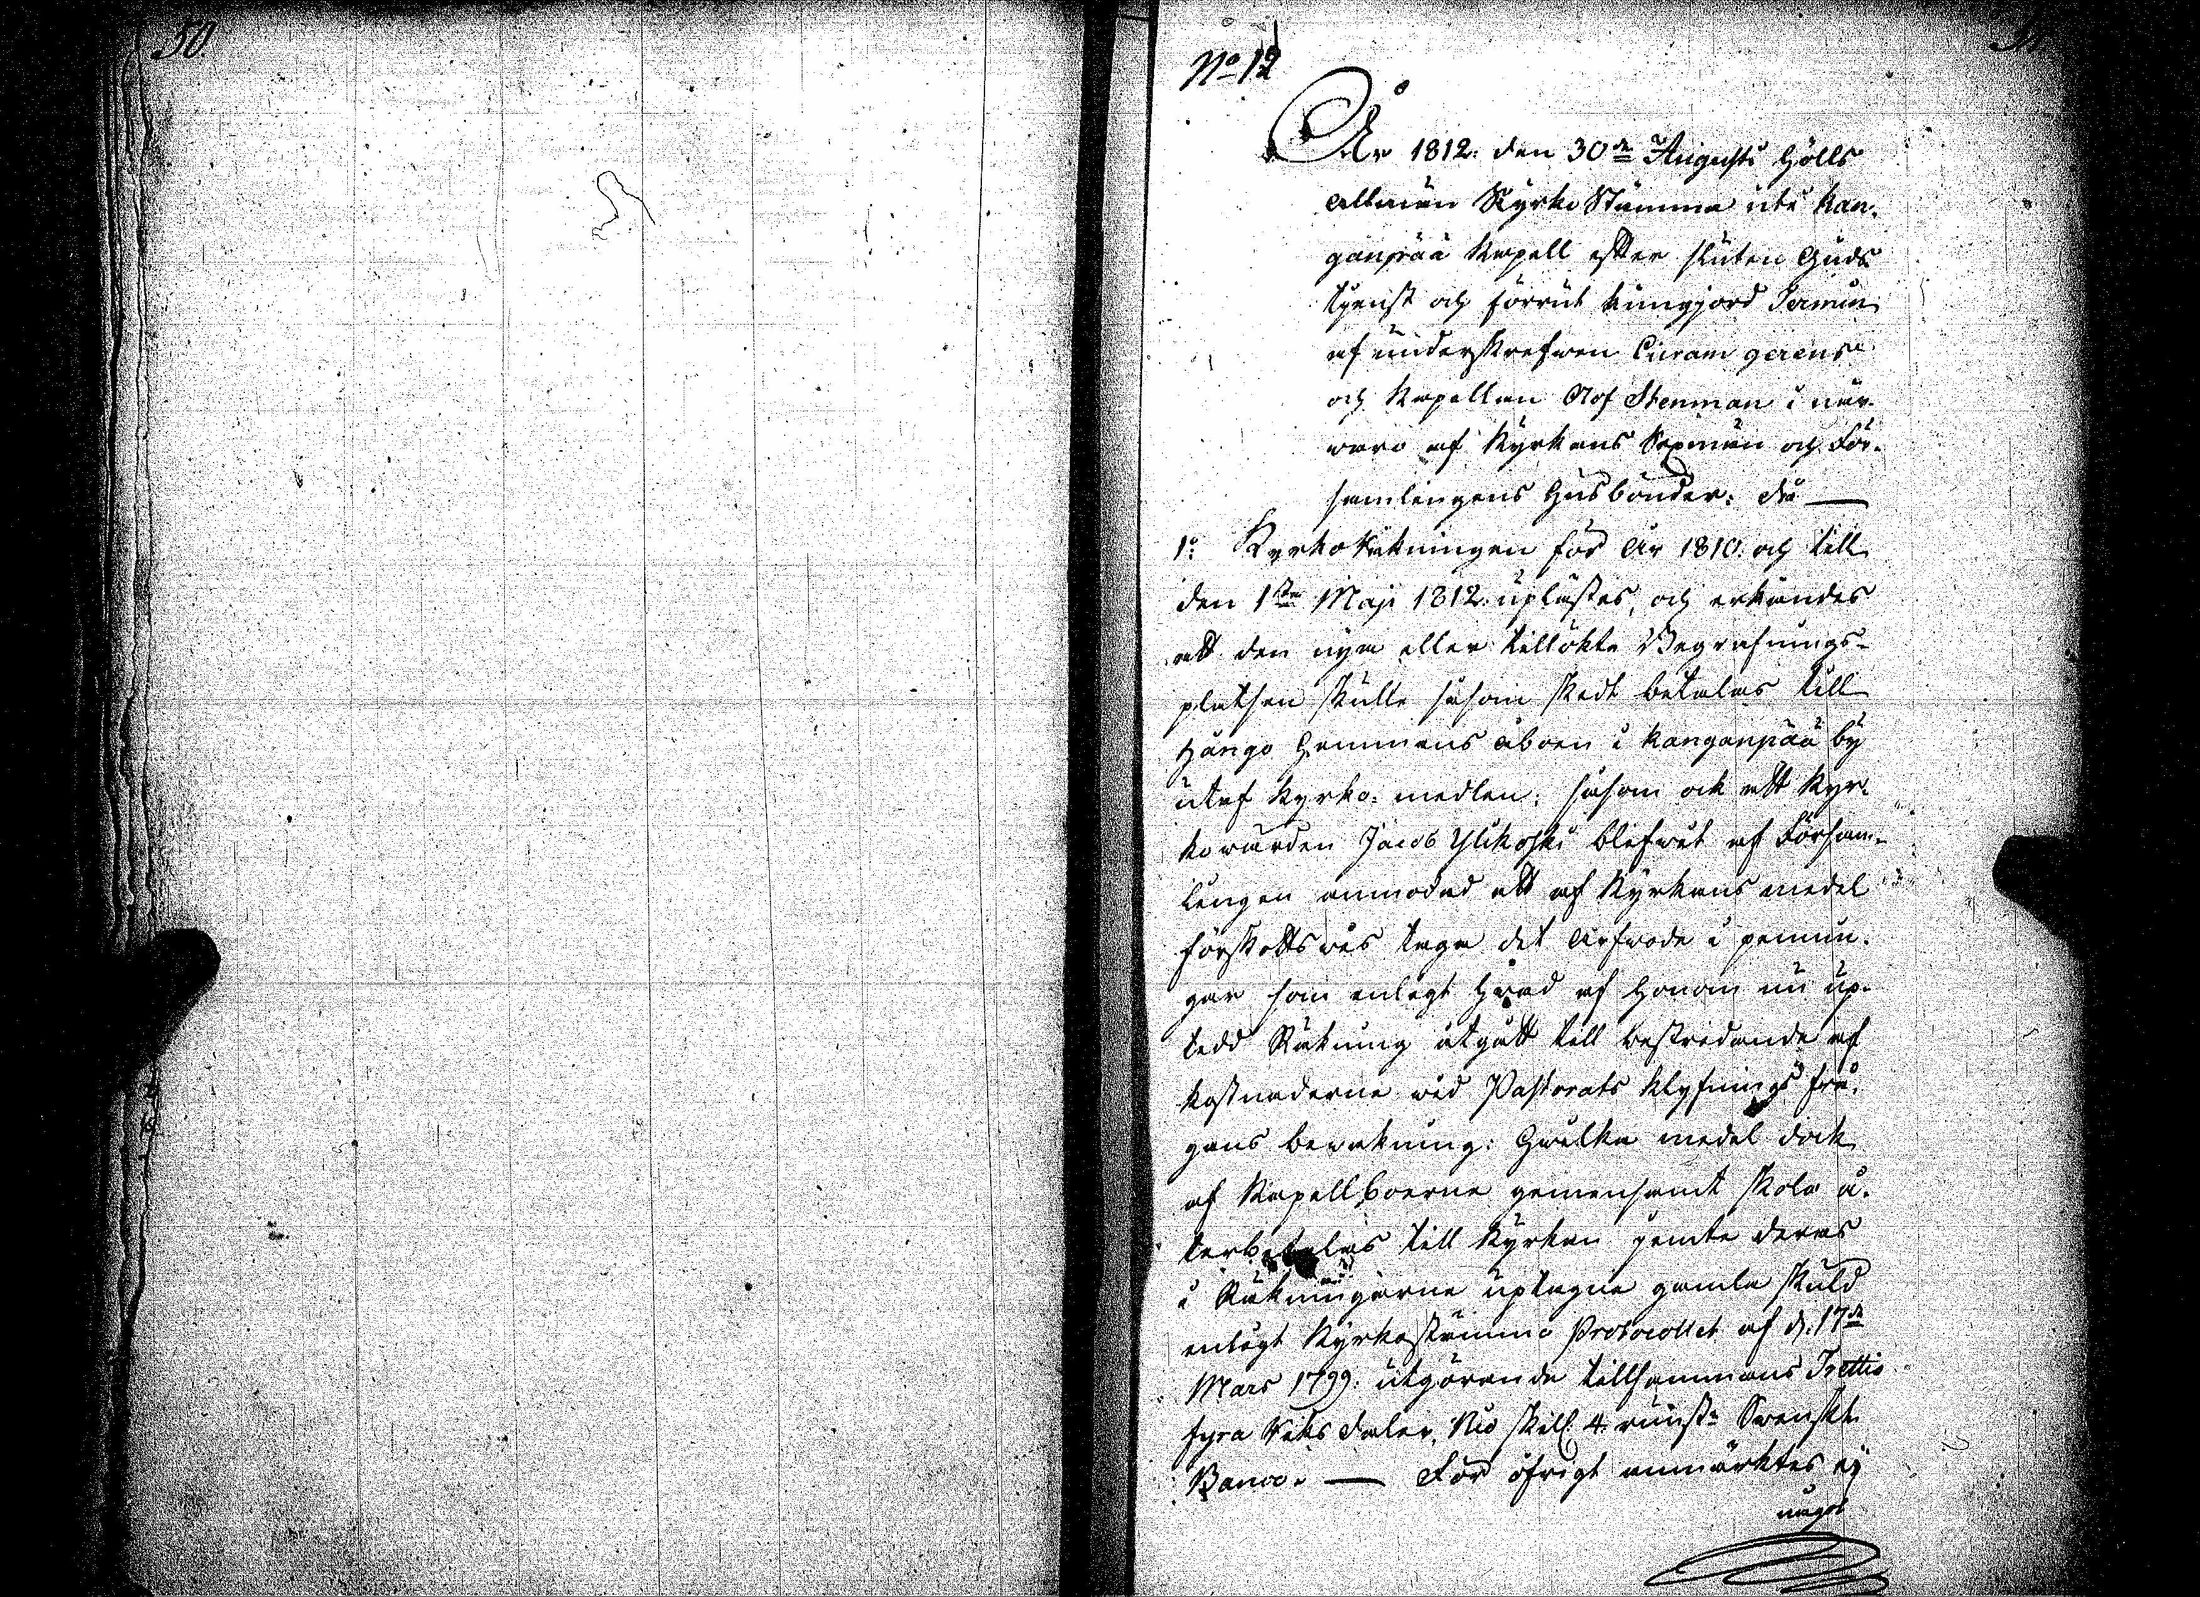 50.
51.
No 12
År 1812. den 30de Augusti hölls
allmän Kyrko Stämma uti Kan-
ganpää Kapell efter sluten Guds
tjenst och förrut kungjord Termin
af underskrefwen Curam gerens
och Kapellan Olof Stenman i när-
waro af Kyrkans Sexmän och För-
samlingens Husbönder: då —
1o: Kyrko Räkningen för År 1810. och till
den 1sta Maji 1812. uplästes, och erkändes
att den nya eller tillökte Begrafnings-
platsen skulle såsom skedt betalas till
Hango Hemmans åboen i Kanganpää by
utaf Kyrko-medlen: såsom ock att Kyr-
kowärden Jacob Ylikoski blefwit af Försam-
lingen anmodad att af Kyrkans medel
förskottswis taga det Arfwode i pennin-
gar som enligt hwad af honom nu up-
tedd Räkning åtgått till bestridande af
kostnaderne wid Pastorats klyfnings frå-
gans bewakning: hwilka medel dock
af Kapellboerne gemensamt skola å-
terbetalas till Kyrkan jemte deras
i Räkningarne uptagne gamla skuld
enligt Kyrkostämmo Protocollet af d. 17de
Mars 1799. utgörande tillsammans Trettio
fyra Riks daler, Nio skill. 4. runst: Swenskt
Banco. — För öfrigt anmärktes ej
något